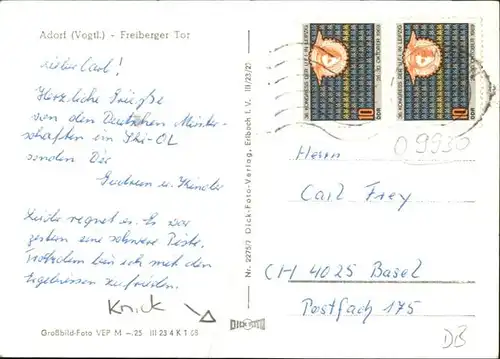 Adorf (Vogtl.) - Freiberger Tor
Lieber Carl!
Herzliche Grüße
von den Deutschen Meister-
schaften im Ski-OL
senden Dir
Gudrun u. Kinder
Leider regnet es. Es war
gestern eine schwere Piste.
Trotzdem bin ich mit den
Ergebnissen zufrieden.
Knick
Großbild-Foto VEP M –.25 III 23 4 K 1 68
Nr. 2275/7 Dick-Foto-Verlag, Erlbach i. V. III/23/21
DICK FOTO
36. KONGRESS DER F.I.P. IN LEIPZIG
10
DDR
36. KONGRESS DER F.I.P. IN LEIPZIG
10
DDR
09930
Herrn
Carl Frey
CH 4025 Basel
Postfach 175
DB